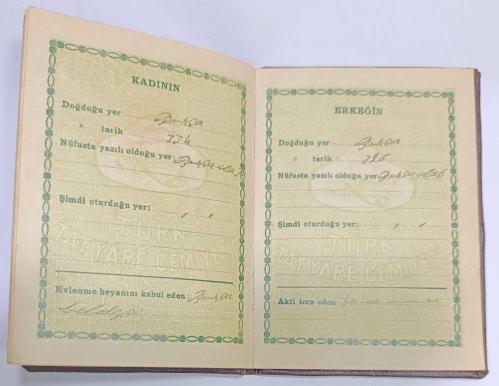 KADININ
Doğduğu yer Bursa
" tarih 334
Nüfusta yazılı olduğu yer Bursada
Şimdi oturduğu yer: " "
TÜRK
TAYYARE CEMİYETİ
Evlenme beyanını kabul eden Bursa
belediyesi
ERKEĞİN
Doğduğu yer Bursa
" tarih 326
Nüfusta yazılı olduğu yer Bursada
Şimdi oturduğu yer: " "
TÜRK
TAYYARE CEMİYETİ
Akti icra eden